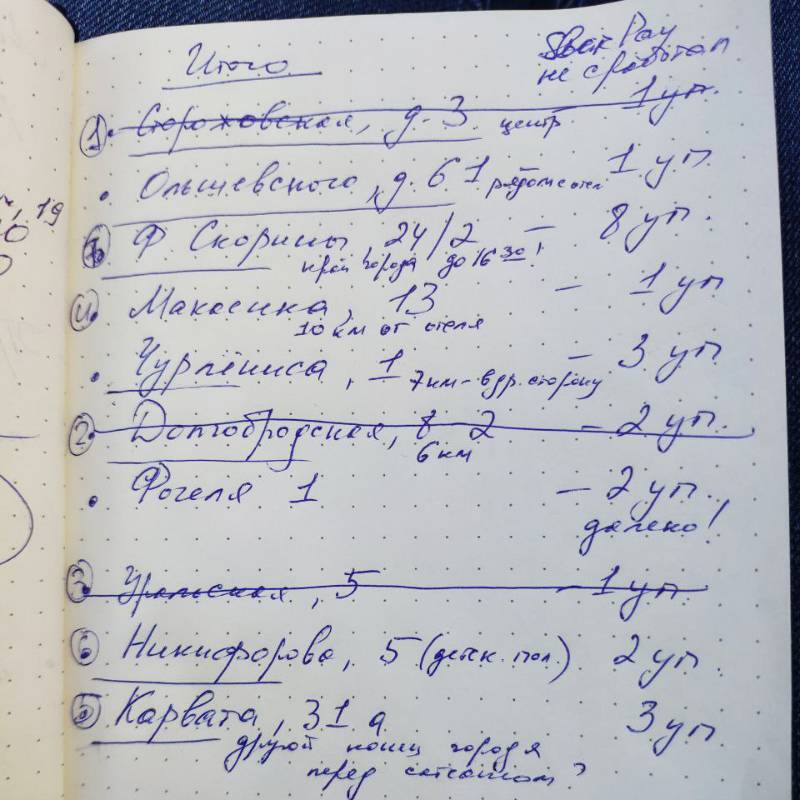 Итого
Swat Pay
не сработал
1 Сторожовская, д. 3 центр – 1 уп.
• Ольшевского, д. 61 рядом с отел 1 уп.
Ф Скорины, 24/2 – 8 уп.
край города до 16 30!
4 Макаенка, 13 – 1 уп
10 км от отеля
• Чурлёниса, 1 – 3 уп
7 км - в др. сторону
2 Долгобродская, 8 2 – 2 уп.
6 км
• Фогеля 1 – 2 уп.
далеко!
3 Уральская, 5 – 1 уп
6 Никифорова, 5 (детск. пол.) 2 уп
5 Карвата, 31 а 3 уп
другой конец города
перед